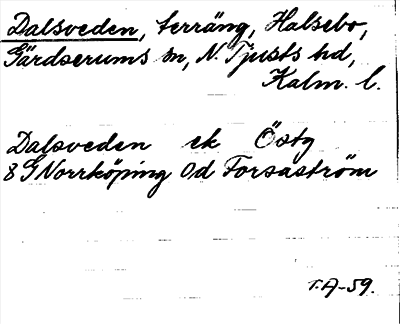 Dalsveden, terräng, Halsebo,
Gärdserums sn, N. Tjusts hd,
Kalm. l.
Dalsveden ek Östg
8 G Norrköping Od Forsaström
T.A-59.